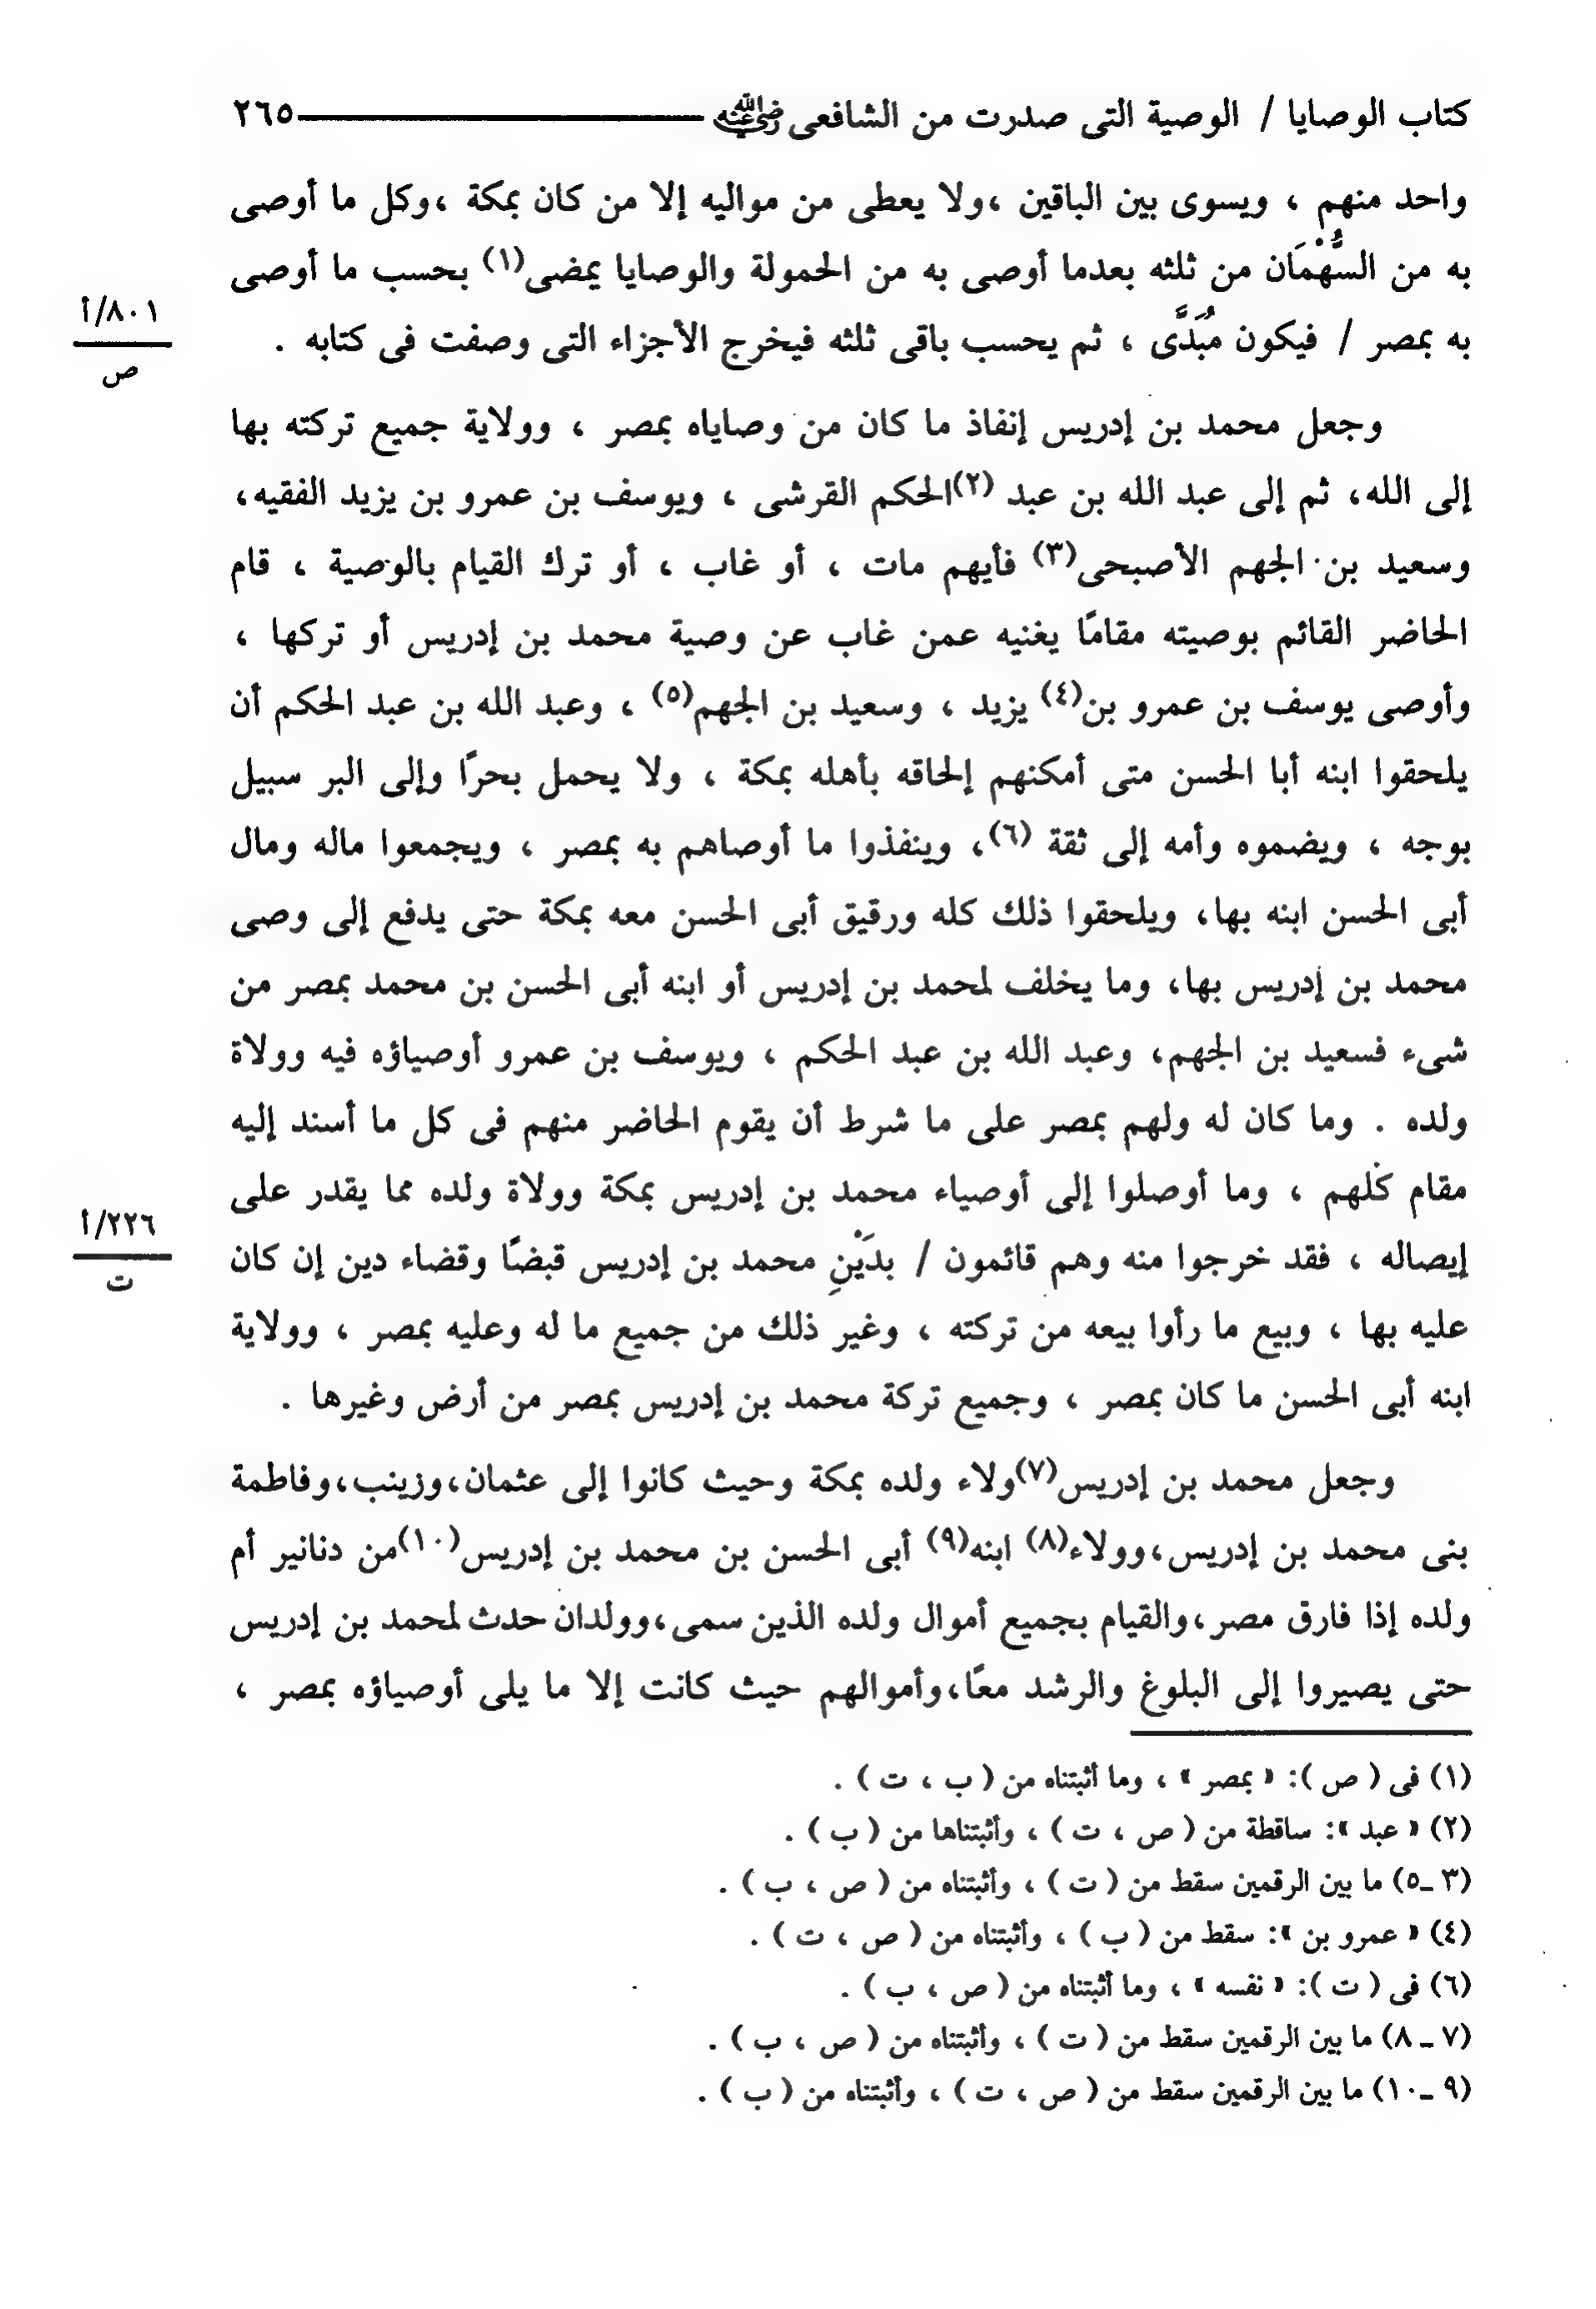 كتاب الوصايا / الوصية التى صدرت من الشافعى رضي الله عنه ٢٦٥
واحد منهم ، ويسوى بين الباقين ،ولا يعطى من مواليه إلا من كان بمكة ،وكل ما أوصى
به من السُّهْمَان من ثلثه بعدما أوصى به من الحمولة والوصايا يمضى(١) بحسب ما أوصى
٨٠١/أ
ص
به بمصر / فيكون مُبَدًّى ، ثم يحسب باقى ثلثه فيخرج الأجزاء التى وصفت فى كتابه .
وجعل محمد بن إدريس إنفاذ ما كان من وصاياه بمصر ، وولاية جميع تركته بها
إلى الله، ثم إلى عبد الله بن عبد (٢)الحكم القرشى ، ويوسف بن عمرو بن يزيد الفقيه،
وسعيد بن الجهم الأصبحى(٣) فأيهم مات ، أو غاب ، أو ترك القيام بالوصية ، قام
الحاضر القائم بوصيته مقامًا يغنيه عمن غاب عن وصية محمد بن إدريس أو تركها ،
وأوصى يوسف بن عمرو بن(٤) يزيد ، وسعيد بن الجهم(٥) ، وعبد الله بن عبد الحكم أن
يلحقوا ابنه أبا الحسن متى أمكنهم إلحاقه بأهله بمكة ، ولا يحمل بحرًا وإلى البر سبيل
بوجه ، ويضموه وأمه إلى ثقة (٦)، وينفذوا ما أوصاهم به بمصر ، ويجمعوا ماله ومال
أبى الحسن ابنه بها، ويلحقوا ذلك كله ورقيق أبى الحسن معه بمكة حتى يدفع إلى وصى
محمد بن إدريس بها، وما يخلف لمحمد بن إدريس أو ابنه أبى الحسن بن محمد بمصر من
شىء فسعيد بن الجهم، وعبد الله بن عبد الحكم ، ويوسف بن عمرو أوصياؤه فيه وولاة
ولده . وما كان له ولهم بمصر على ما شرط أن يقوم الحاضر منهم فى كل ما أسند إليه
مقام كلهم ، وما أوصلوا إلى أوصياء محمد بن إدريس بمكة وولاة ولده مما يقدر على
٢٢٦/أ
ت
إيصاله ، فقد خرجوا منه وهم قائمون / بدَيْنِ محمد بن إدريس قبضًا وقضاء دين إن كان
عليه بها ، وبيع ما رأوا بيعه من تركته ، وغير ذلك من جميع ما له وعليه بمصر ، وولاية
ابنه أبى الحسن ما كان بمصر ، وجميع تركة محمد بن إدريس بمصر من أرض وغيرها .
وجعل محمد بن إدريس(٧)ولاء ولده بمكة وحيث كانوا إلى عثمان،وزينب،وفاطمة
بنى محمد بن إدريس،وولاء(٨) ابنه(٩) أبى الحسن بن محمد بن إدريس(١٠)من دنانير أم
ولده إذا فارق مصر،والقيام بجميع أموال ولده الذين سمى،وولدان حدث لمحمد بن إدريس
حتى يصيروا إلى البلوغ والرشد معًا،وأموالهم حيث كانت إلا ما يلى أوصياؤه بمصر ،
(١) فى ( ص ): « بمصر » ، وما أثبتناه من ( ب ، ت ) .
(٢) « عبد »: ساقطة من ( ص ، ت ) ، وأثبتناها من ( ب ) .
(٣ ـ٥) ما بين الرقمين سقط من ( ت ) ، وأثبتناه من ( ص ، ب ) .
(٤) « عمرو بن »: سقط من ( ب ) ، وأثبتناه من ( ص ، ت ) .
(٦) فى ( ت ): « نفسه » ، وما أثبتناه من ( ص ، ب ) .
(٧ ـ ٨) ما بين الرقمين سقط من ( ت ) ، وأثبتناه من ( ص ، ب ) .
(٩ ـ١٠) ما بين الرقمين سقط من ( ص ، ت ) ، وأثبتناه من ( ب ) .